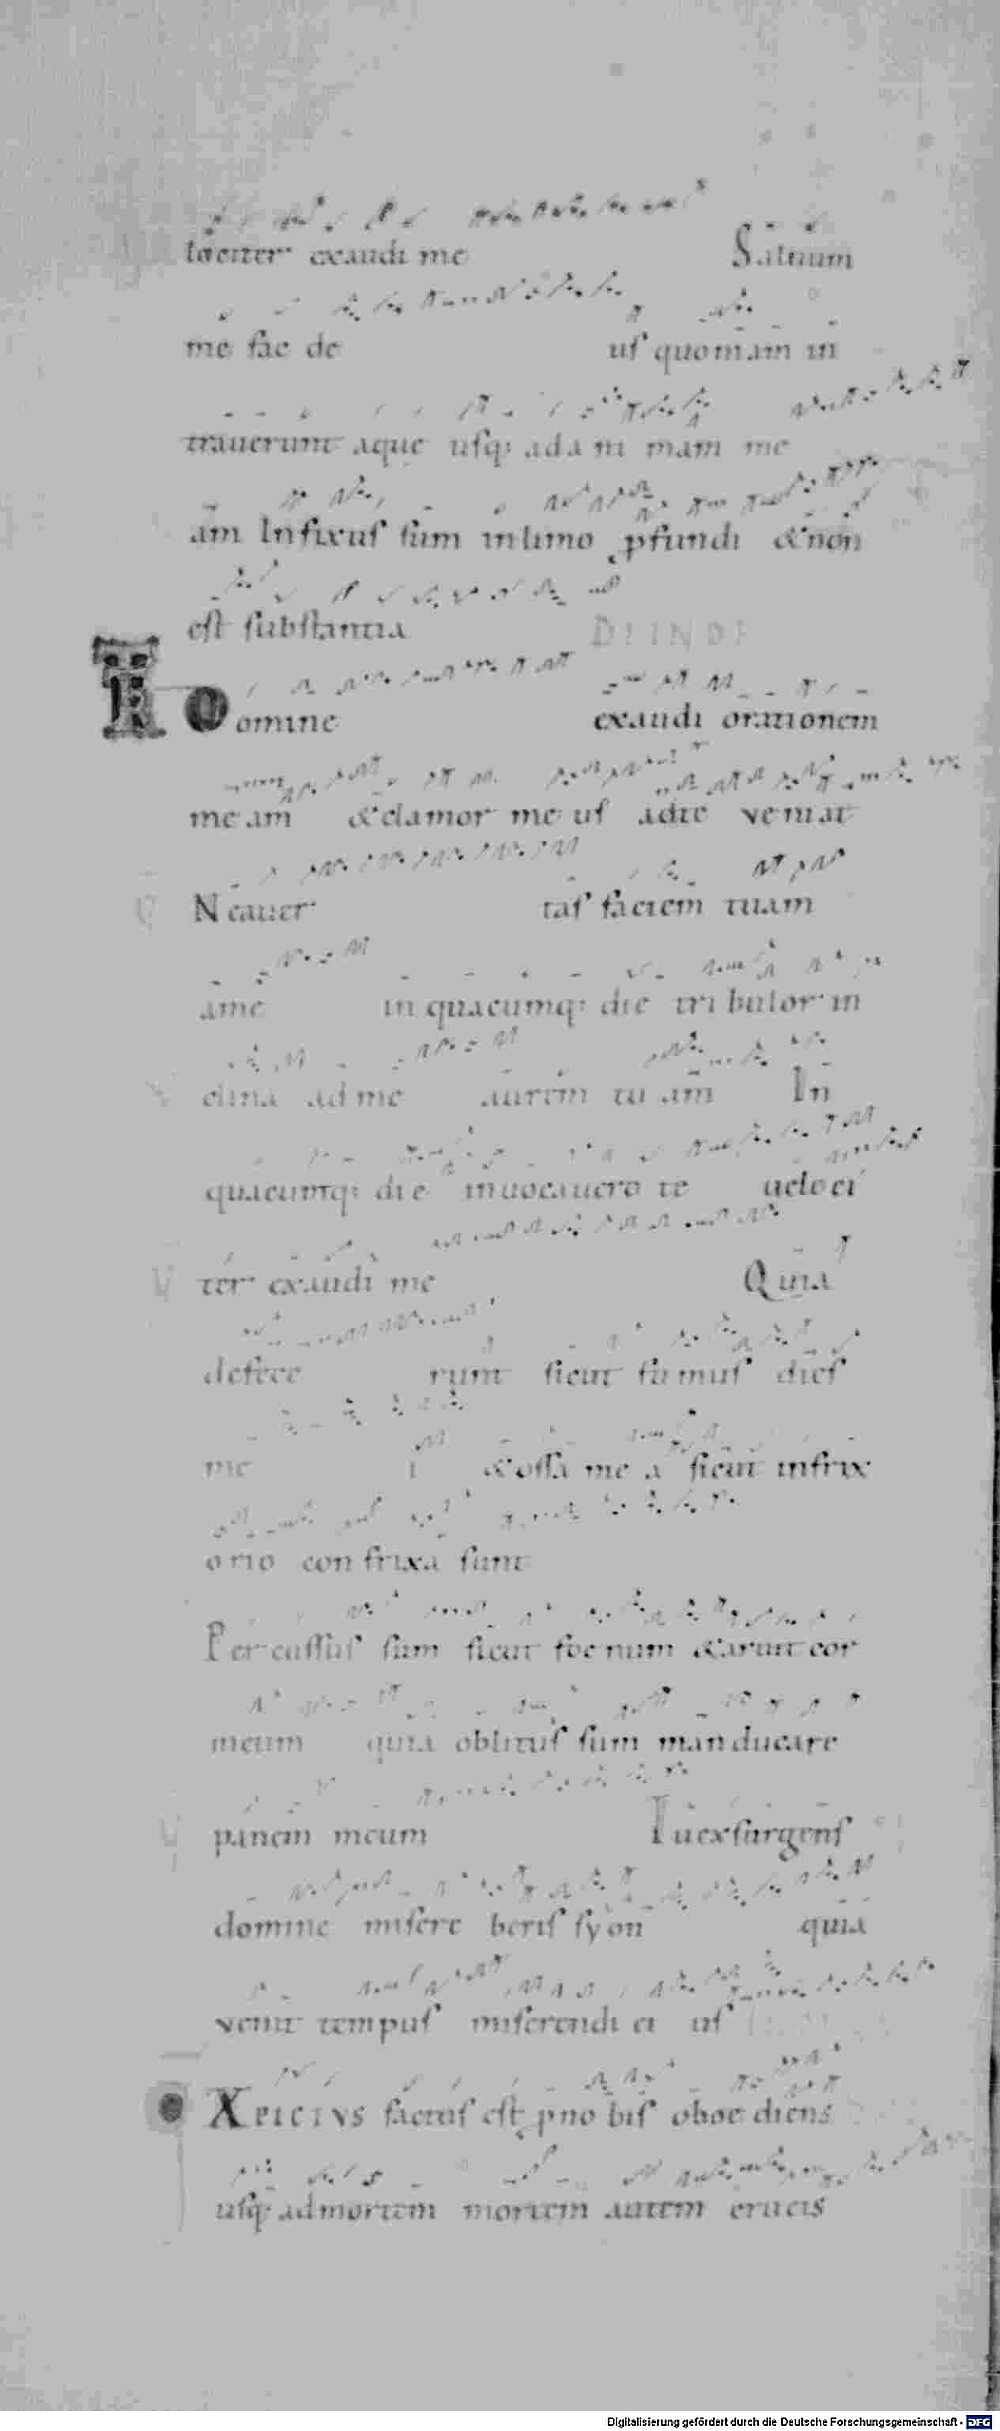 lociter exaudi me Saluum
me fac de us quoniam in
trauerunt aque usq; ad a ni mam me
am Infixus sum inlimo pfundi & non
est substantia DEINDE
TR Domine exaudi orationem
me am & clamor me us adte veniat
Ne auer tas faciem tuam
ame in quacumq; die tri bulor in
clina ad me aurem tu am In
quacumq; die inuocauero te ueloci
ter exaudi me Quia
defece runt sicut fu mus dies
me i & ossa me a sicut infrix
orio con frixa sunt
Per cussus sum sicut foe num & aruit cor
meum quia oblitus sum manducare
panem meum Tu exsurgens
domine misere beris syon quia
venit tempus miserendi ei us
XPICTVS factus est p no bis oboe diens
usq; ad mortem mortem autem crucis
Digitalisierung gefördert durch die Deutsche Forschungsgemeinschaft - DFG